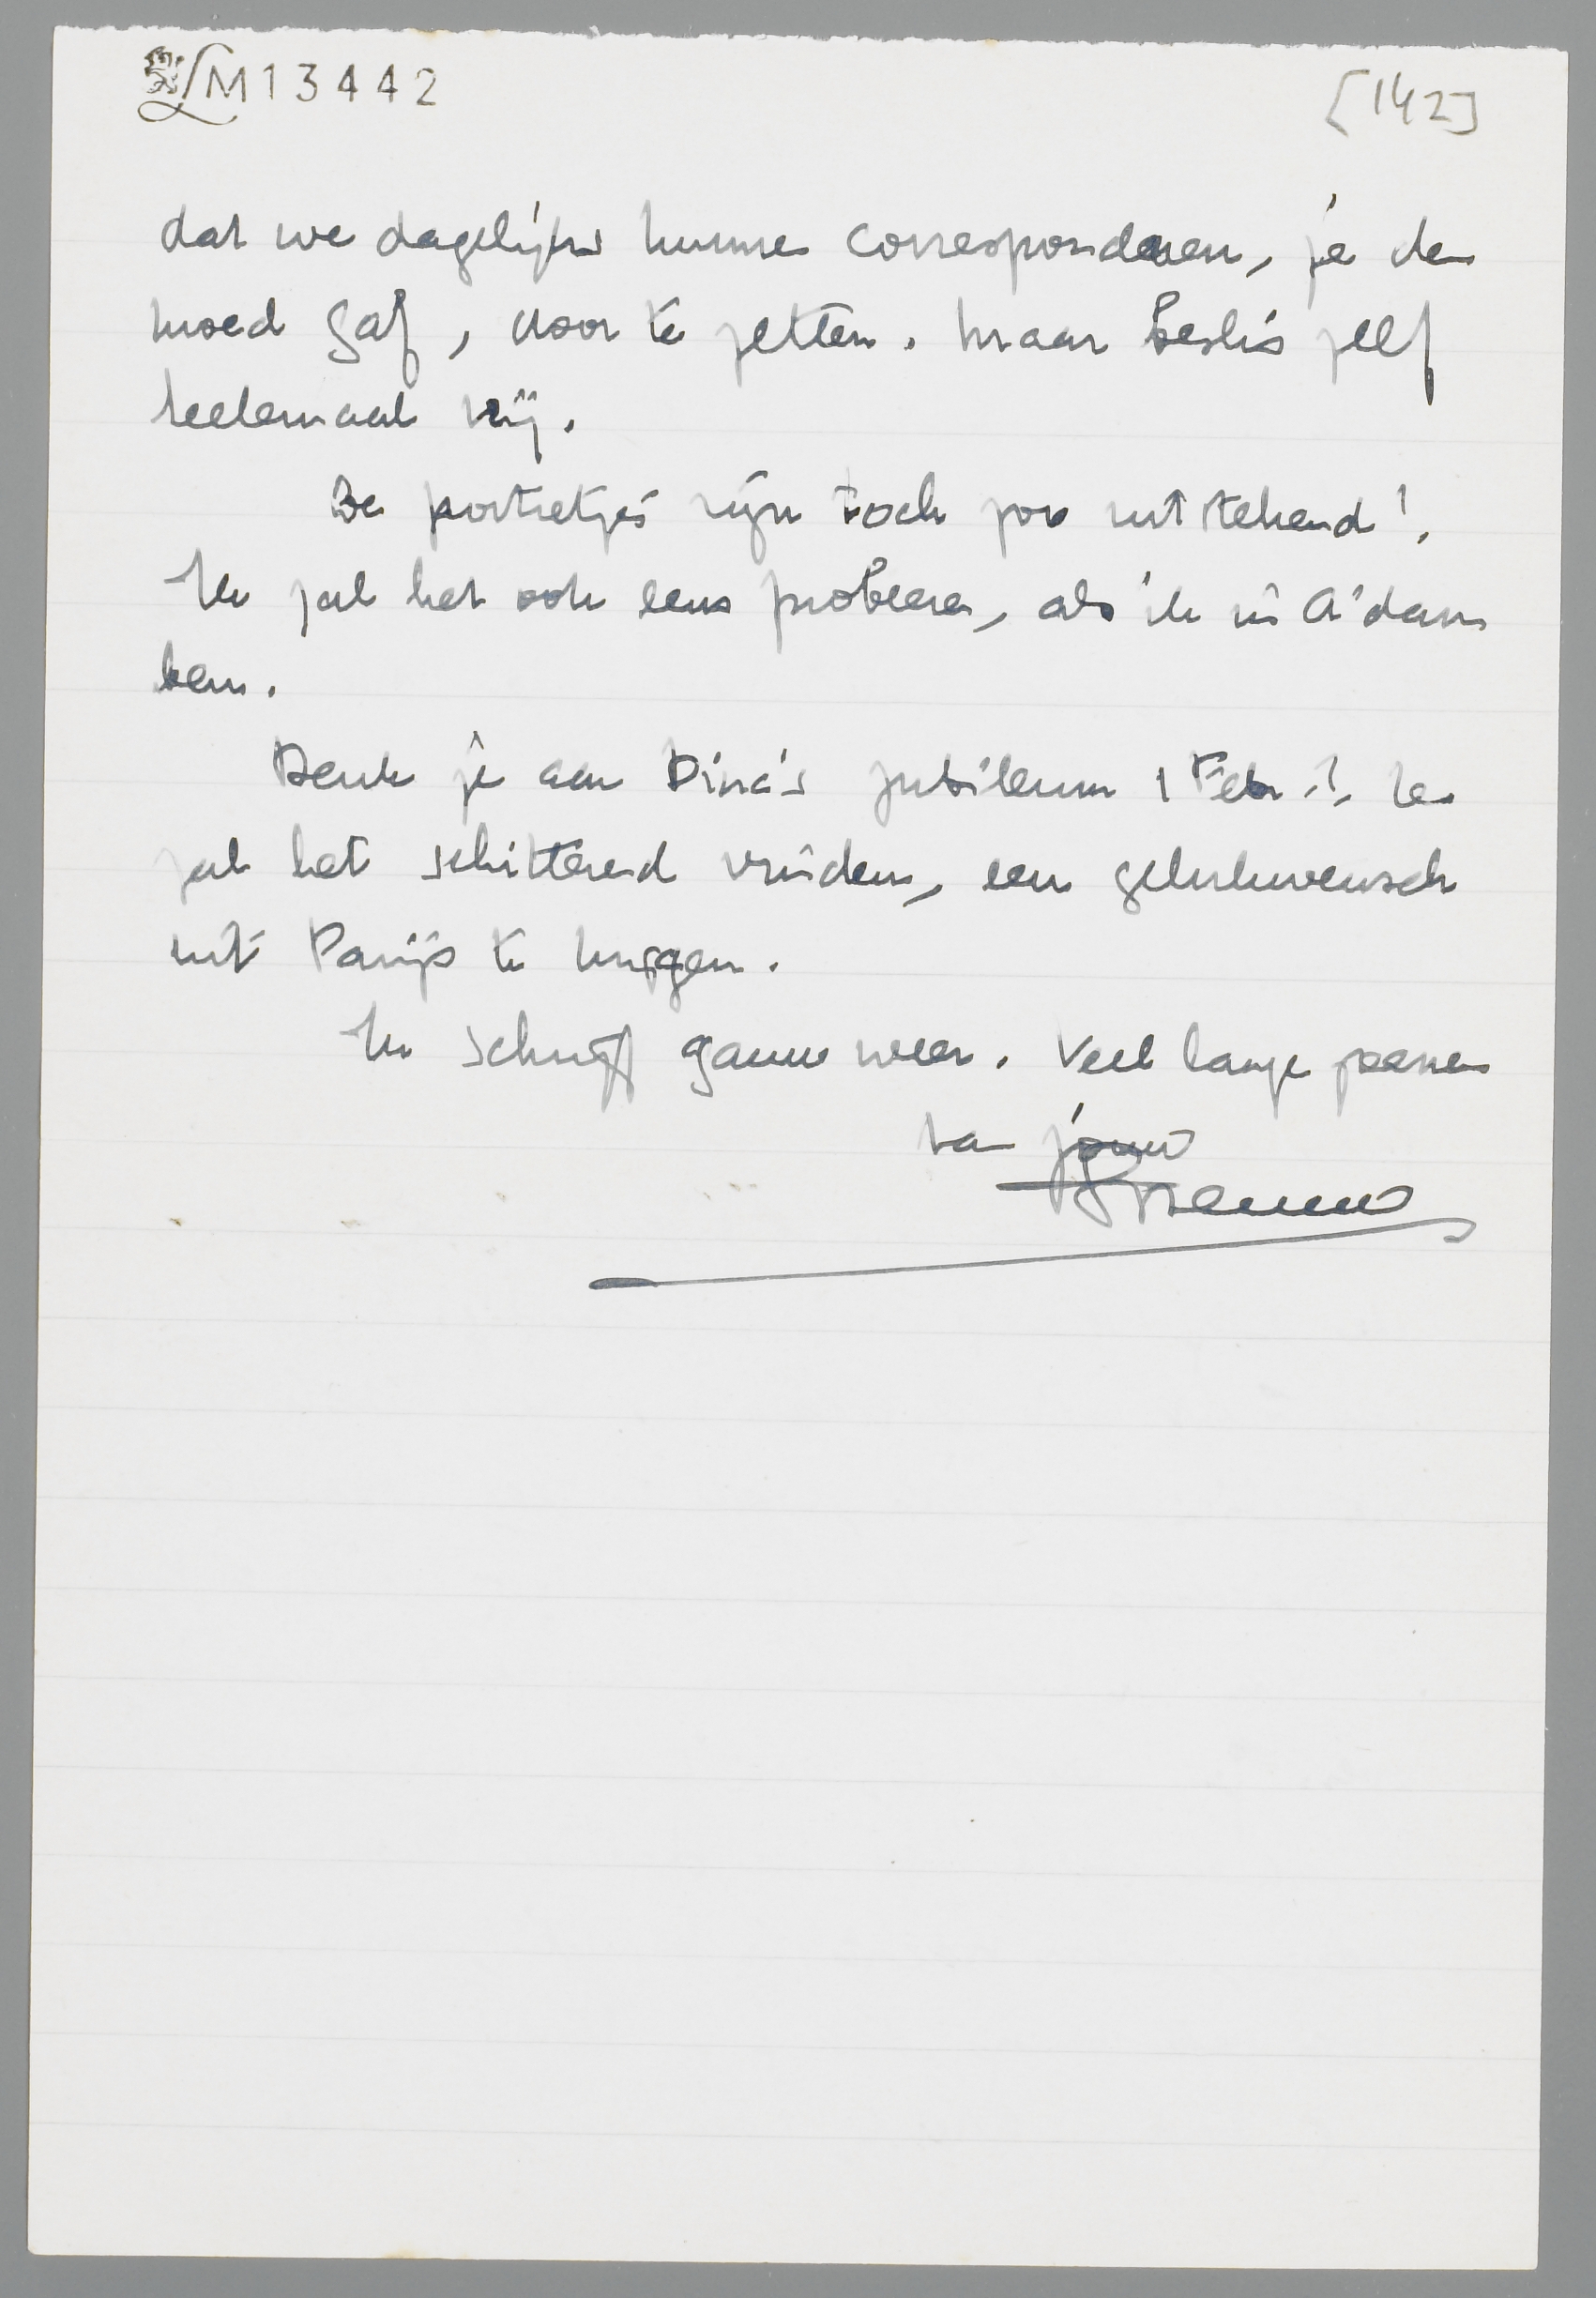 LM13442
[142]
dat we dagelijks kunnen corresponderen, je den
moed gaf, door te zetten. Maar beslis zelf
heelemaal vrij.
De portretjes zijn toch zoo uitstekend!
Ik zal het ook eens probeeren, als ik in A'dam
ben.
Denk je aan Dina's jubileum 1 Febr.? Ze
zal het schitterend vinden, een gelukwensch
uit Parijs te krijgen.
Ik schrijf gauw weer. Veel lange zoenen
van jouw